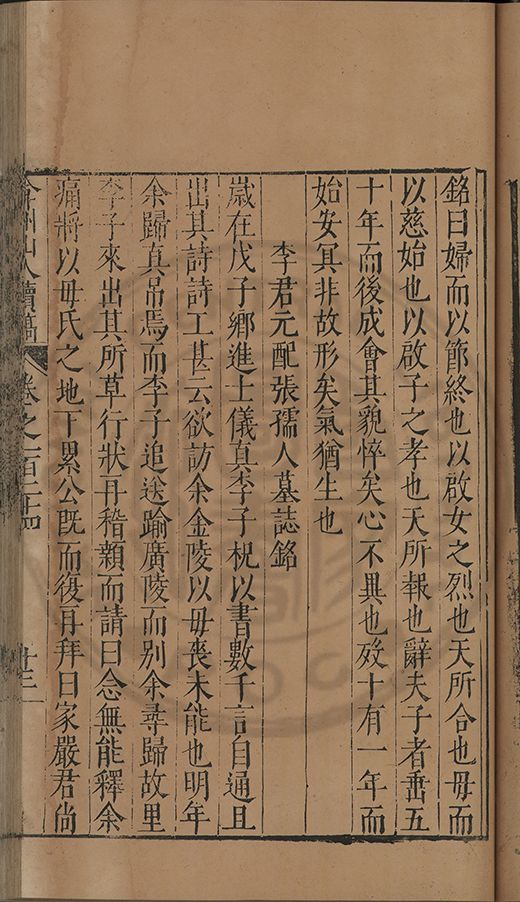 銘曰婦而以節終也以啟女之烈也天所合也毋而
以慈始也以啟子之孝也天所報也辭夫子者垂五
十年而後成會其貌悴矣心不異也歿十有一年而
始安冥非故形矣氣猶生也
李君元配張孺人墓誌銘
歲在戊子鄉進士儀真李子柷以書數千言自通且
出其詩詩工甚云欲訪余金陵以毋喪未能也明年
余歸真吊焉而李子追送踰廣陵而別余尋歸故里
李子來出其所草行狀再稽顙而請曰念無能釋余
痛將以毋氏之地下累公既而復再拜曰家嚴君尚
弇州山人續稿 卷之一百二十四 廿三